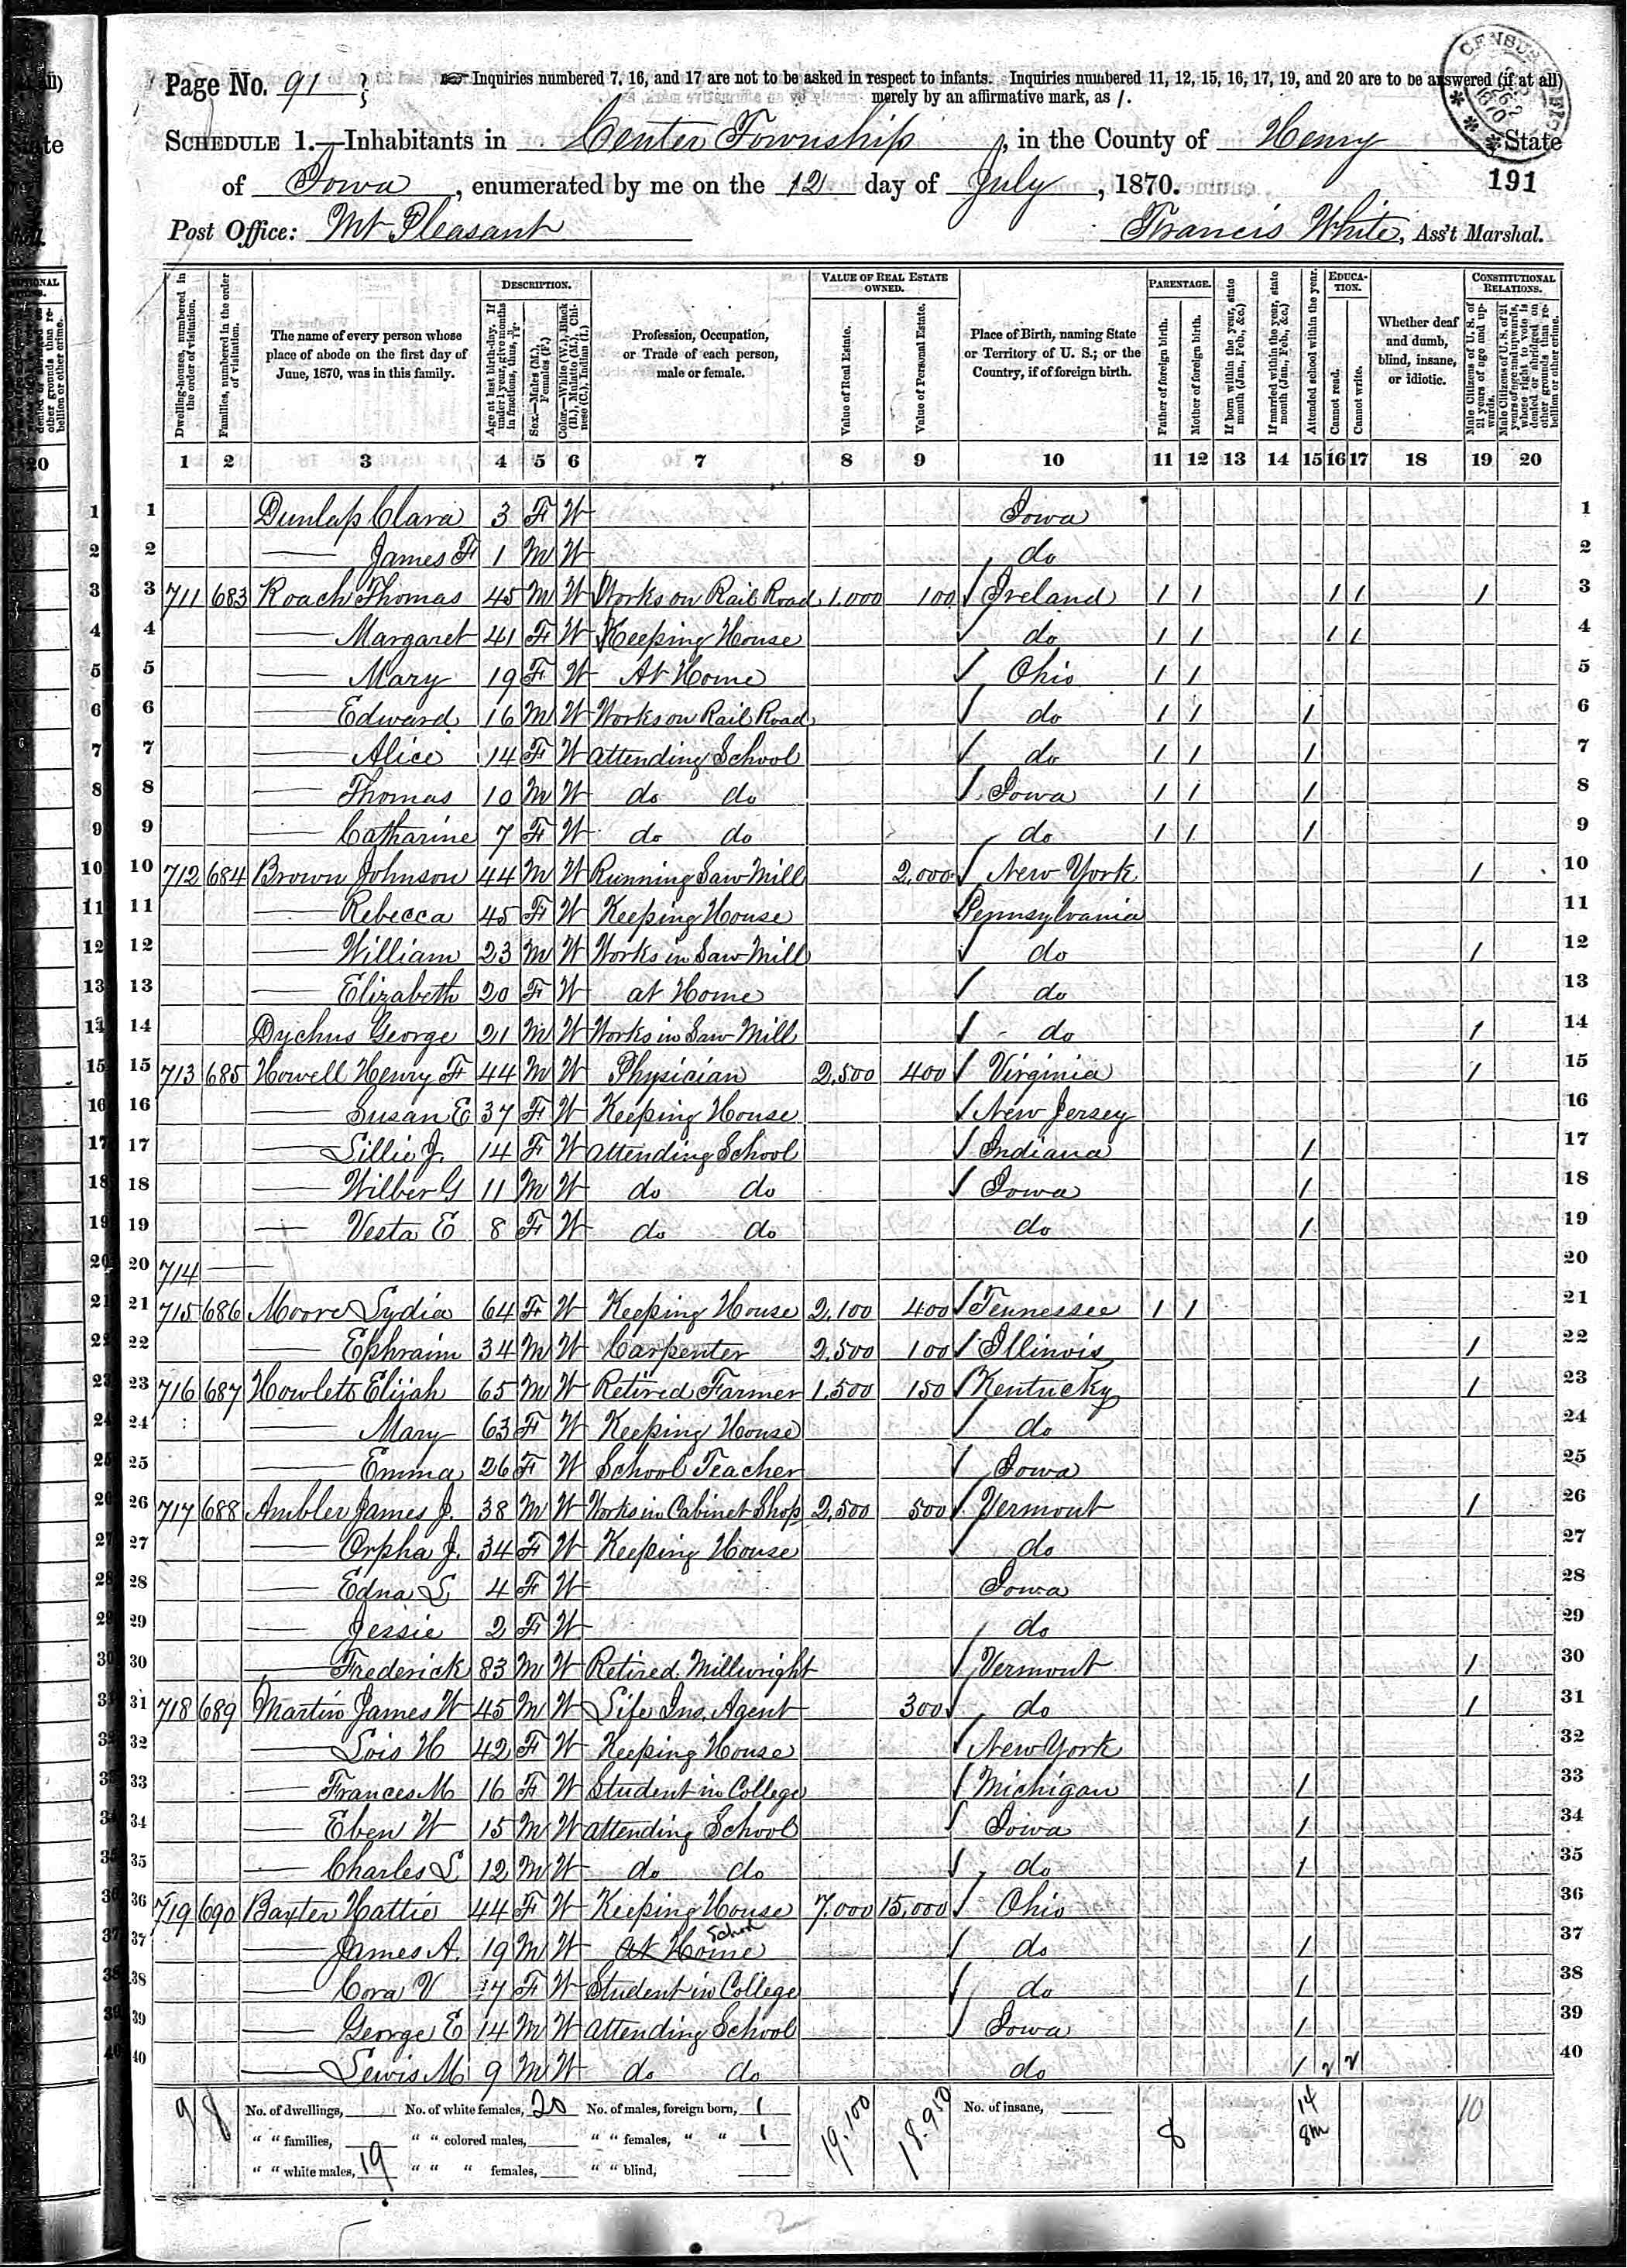 Page No. 91
Inquiries numbered 7, 16, and 17 are not to be asked in respect to infants. Inquiries numbered 11, 12, 15, 16, 17, 19, and 20 are to be answered (if at all)
merely by an affirmative mark, as /.
SCHEDULE 1.—Inhabitants in Center Township, in the County of Henry, State
of Iowa, enumerated by me on the 12 day of July, 1870.
191
Post Office: Mt Pleasant
Francis White, Ass't Marshal.
Dwelling-houses, numbered in the order of visitation.
Families, numbered in the order of visitation.
The name of every person whose place of abode on the first day of June, 1870, was in this family.
DESCRIPTION.
Age at last birth-day. If under 1 year, give months in fractions, thus,
Sex.—Males (M.), Females (F.)
Color.—White (W.), Black (B.), Mulatto (M.), Chinese (C.), Indian (I.)
Profession, Occupation, or Trade of each person, male or female.
VALUE OF REAL ESTATE OWNED.
Value of Real Estate.
Value of Personal Estate.
Place of Birth, naming State or Territory of U. S.; or the Country, if of foreign birth.
PARENTAGE.
Father of foreign birth.
Mother of foreign birth.
If born within the year, state month (Jan., Feb., &c.)
If married within the year, state month (Jan., Feb., &c.)
Attended school within the year.
EDUCATION.
Cannot read.
Cannot write.
Whether deaf and dumb, blind, insane, or idiotic.
CONSTITUTIONAL RELATIONS.
Male Citizens of U. S. of 21 years of age and upwards.
Male Citizens of U. S. of 21 years of age and upwards, whose right to vote is denied or abridged on other grounds than rebellion or other crime.
1 2 3 4 5 6 7 8 9 10 11 12 13 14 15 16 17 18 19 20
1 Dunlap Clara 3 F W Iowa 1
2 — James F 1 M W do 2
3 711 683 Roach Thomas 45 M W Works on Rail Road 1,000 100 / Ireland 1 1 1 1 1 3
4 — Margaret 41 F W Keeping House / do 1 1 1 1 4
5 — Mary 19 F W At Home / Ohio 1 1 5
6 — Edward 16 M W Works on Rail Road / do 1 1 1 6
7 — Alice 14 F W attending School / do 1 1 1 7
8 — Thomas 10 M W do do / Iowa 1 1 1 8
9 — Catharine 7 F W do do do 1 1 1 9
10 712 684 Brown Johnson 44 M W Running Saw Mill 2,000 / New York 1 10
11 — Rebecca 45 F W Keeping House Pennsylvania 11
12 — William 23 M W Works in Saw Mill / do 1 12
13 — Elizabeth 20 F W at Home / do 13
14 Dychus George 21 M W Works in Saw Mill / do 1 14
15 713 685 Howell Henry F 44 M W Physician 2,500 400 / Virginia 1 15
16 — Susan E 37 F W Keeping House / New Jersey 16
17 — Lillie J. 14 F W attending School / Indiana 1 17
18 — Wilber G 11 M W do do / Iowa 1 18
19 — Vesta E 8 F W do do do 1 19
20 714 — 20
21 715 686 Moore Lydia 64 F W Keeping House 2,100 400 / Tennessee 1 1 21
22 — Ephraim 34 M W Carpenter 2,500 100 / Illinois 1 22
23 716 687 Howlett Elijah 65 M W Retired Farmer 1,500 150 / Kentucky 1 23
24 — Mary 63 F W Keeping House / do 24
25 — Emma 26 F W School Teacher / Iowa 25
26 717 688 Ambler James J. 38 M W Works in Cabinet Shop 2,500 500 / Vermont 1 26
27 — Orpha J. 34 F W Keeping House / do 27
28 — Edna L 4 F W Iowa 28
29 — Jessie 2 F W do 29
30 — Frederick 83 M W Retired Millwright / Vermont 1 30
31 718 689 Martin James W 45 M W Life Ins. Agent 300 / do 1 31
32 — Lois H 42 F W Keeping House / New York 32
33 — Frances M 16 F W Student in College / Michigan 1 33
34 — Eben W 15 M W attending School / Iowa 1 34
35 — Charles L 12 M W do do / do 1 35
36 719 690 Baxter Hattie 44 F W Keeping House 7,000 15,000 / Ohio 36
37 — James A. 19 M W At Home School / do 1 37
38 — Cora V 17 F W Student in College / do 1 38
39 — George E 14 M W attending School / Iowa 1 39
40 — Lewis M 9 M W do do do 1 40
9 8 No. of dwellings, No. of white females, 20 No. of males, foreign born, 1 19,100 18,950 No. of insane, 8 14 8m 10
" " families, " " colored males, " " females, " " 1
" " white males, 19 " " " females, " " blind,